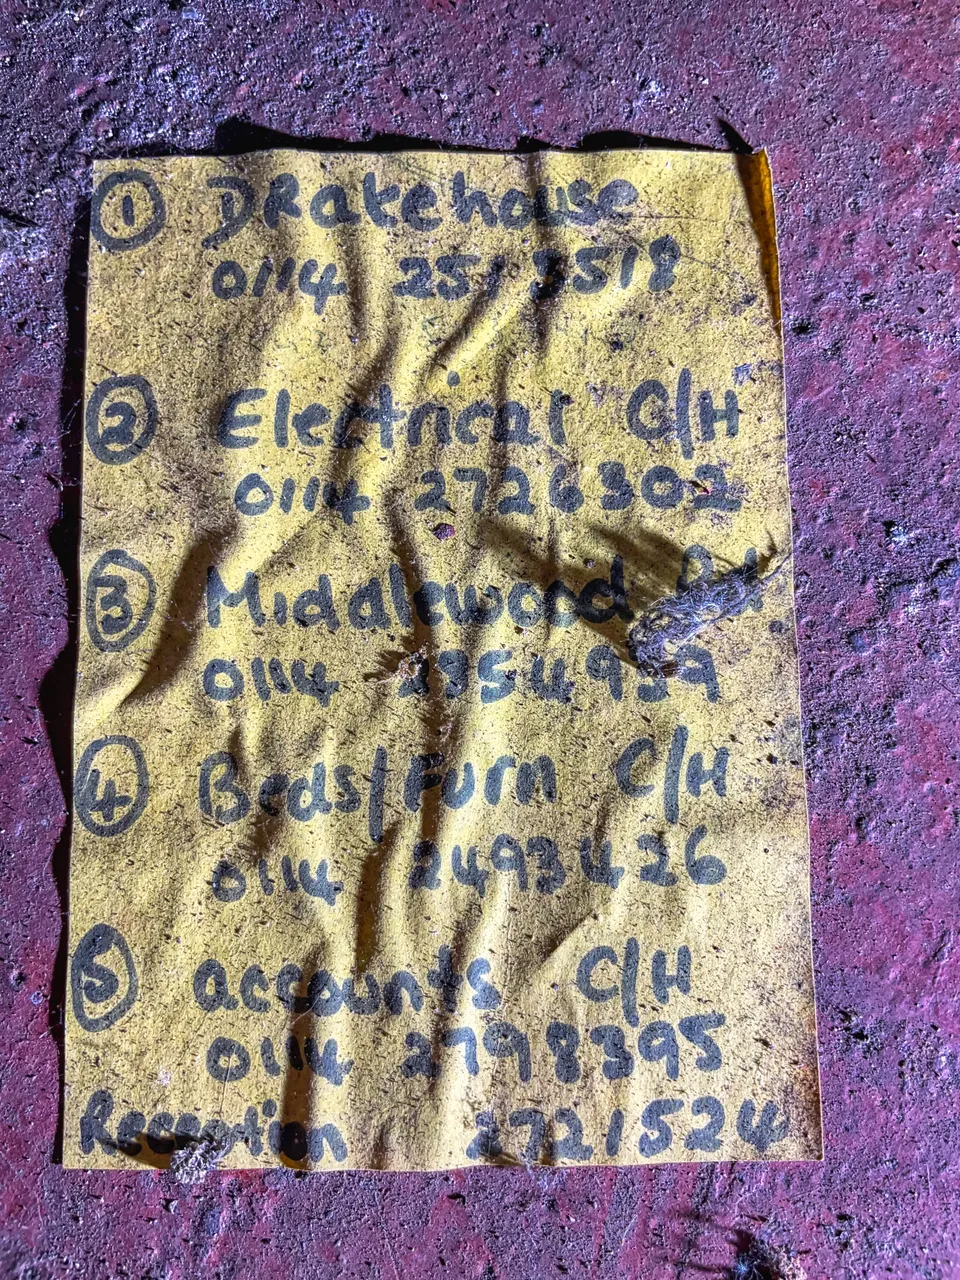 ① DRakehouse
0114 251 3518
② Electrical C/H
0114 2726302
③ Middlewood Rd.
0114 2354959
④ Beds/Furn C/H
0114 2493426
⑤ accounts C/H
0114 2798395
Reception 2721524